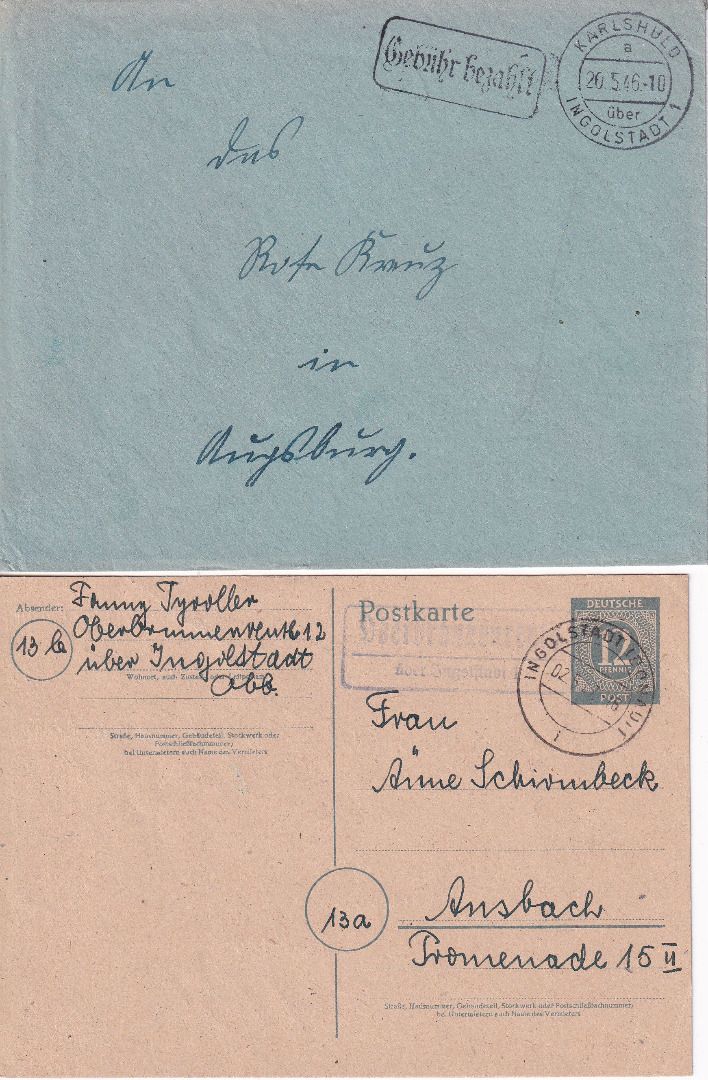 Gebühr bezahlt
KARLSHULD
a
20.5.46.-10
über
INGOLSTADT 1
An
das
Rote Kreuz
in
Augsburg.
Absender:
Fanny Tyroller
13b
über Ingolstadt
Wohnort, auch Zustell- oder Leitpostamt
Obb.
Straße, Hausnummer, Gebäudeteil, Stockwerk oder
Postschließfachnummer;
bei Untermietern auch Name des Vermieters
Postkarte
über Ingolstadt
DEUTSCHE
12
PFENNIG
POST
INGOLSTADT (DONAU) 1
Frau
Änne Schirmbeck
13a
Ansbach
Promenade 15 II
Straße, Hausnummer, Gebäudeteil, Stockwerk oder Postschließfachnummer;
bei Untermietern auch Name des Vermieters